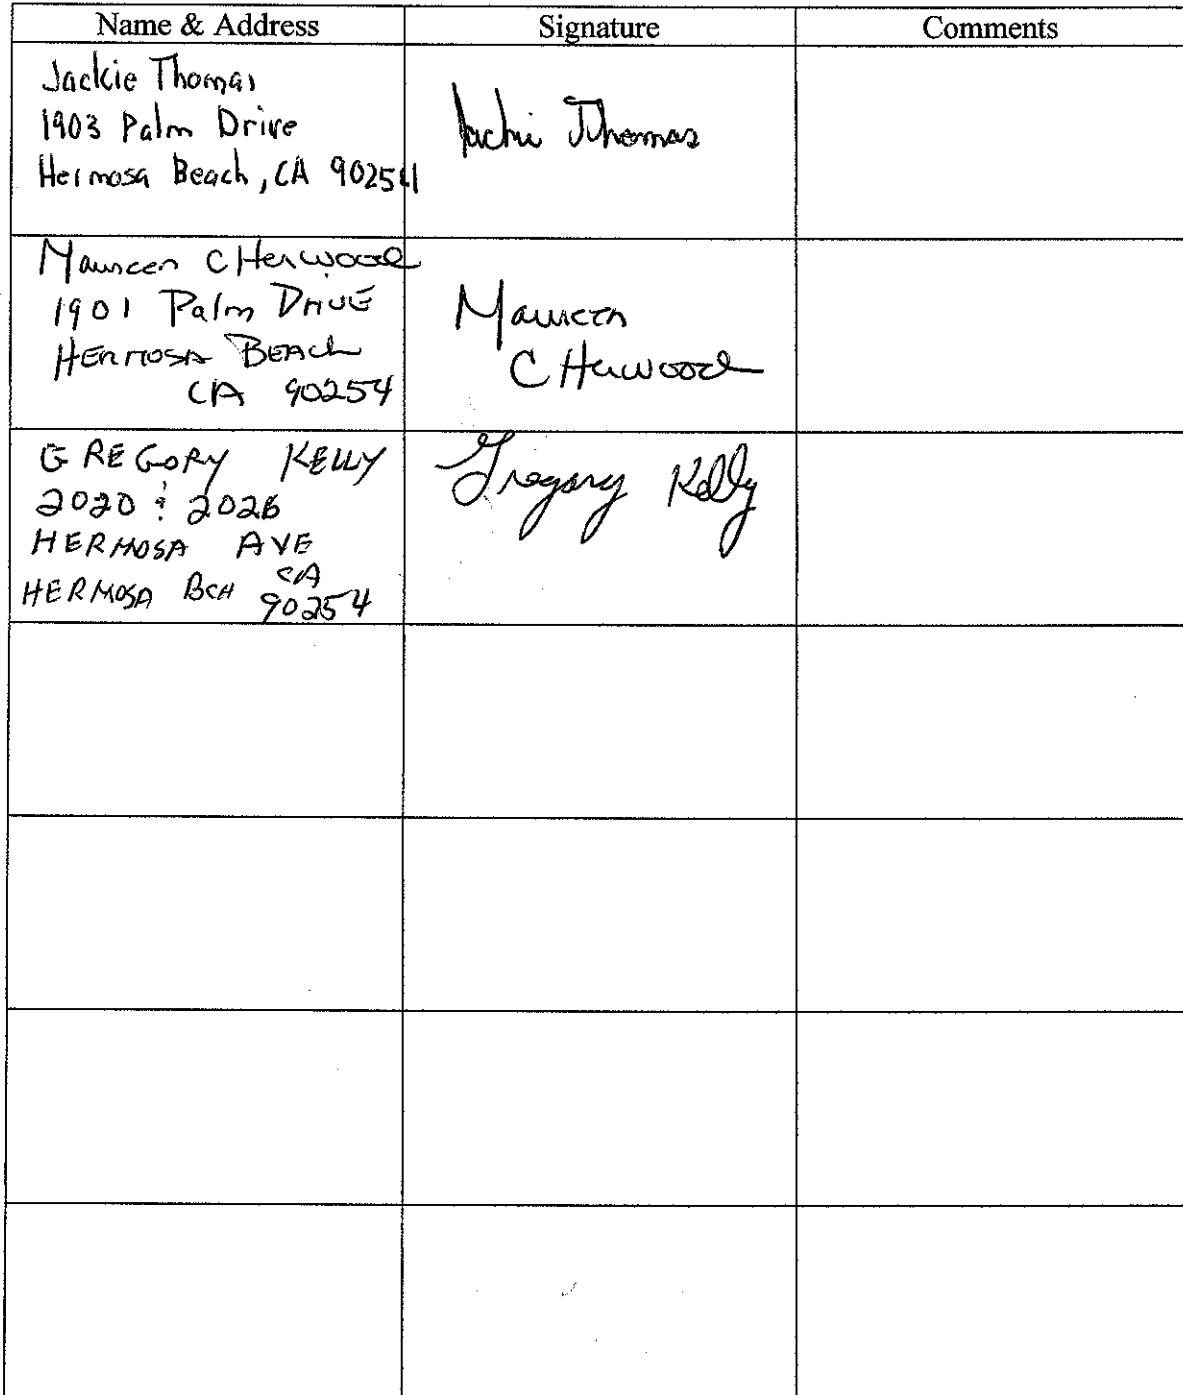 Name & Address Signature Comments
Jackie Thomas
1903 Palm Drive
Hermosa Beach, CA 90254
Jackie Thomas
Maureen C Herwood
1901 Palm Drive
HERMOSA BEACH
CA 90254
Maureen
C Herwood
GREGORY KELLY
2020 & 2026
HERMOSA AVE
CA
HERMOSA BCH 90254
Gregory Kelly